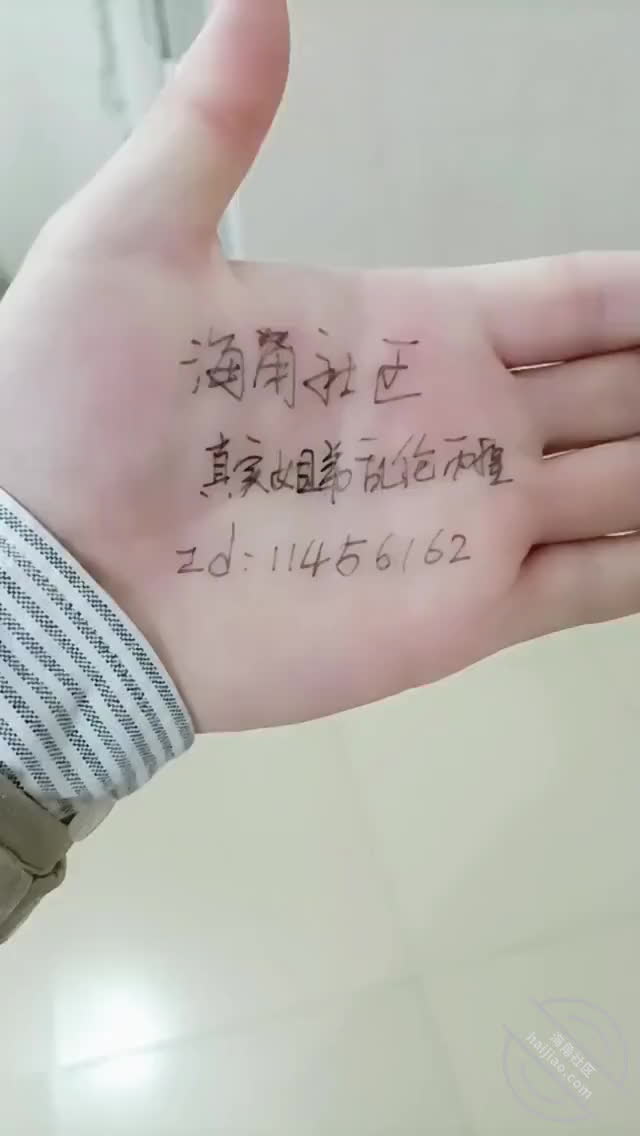 海角社区
真实姐弟乱伦
zd:11456162
海角社区
haijiao.com